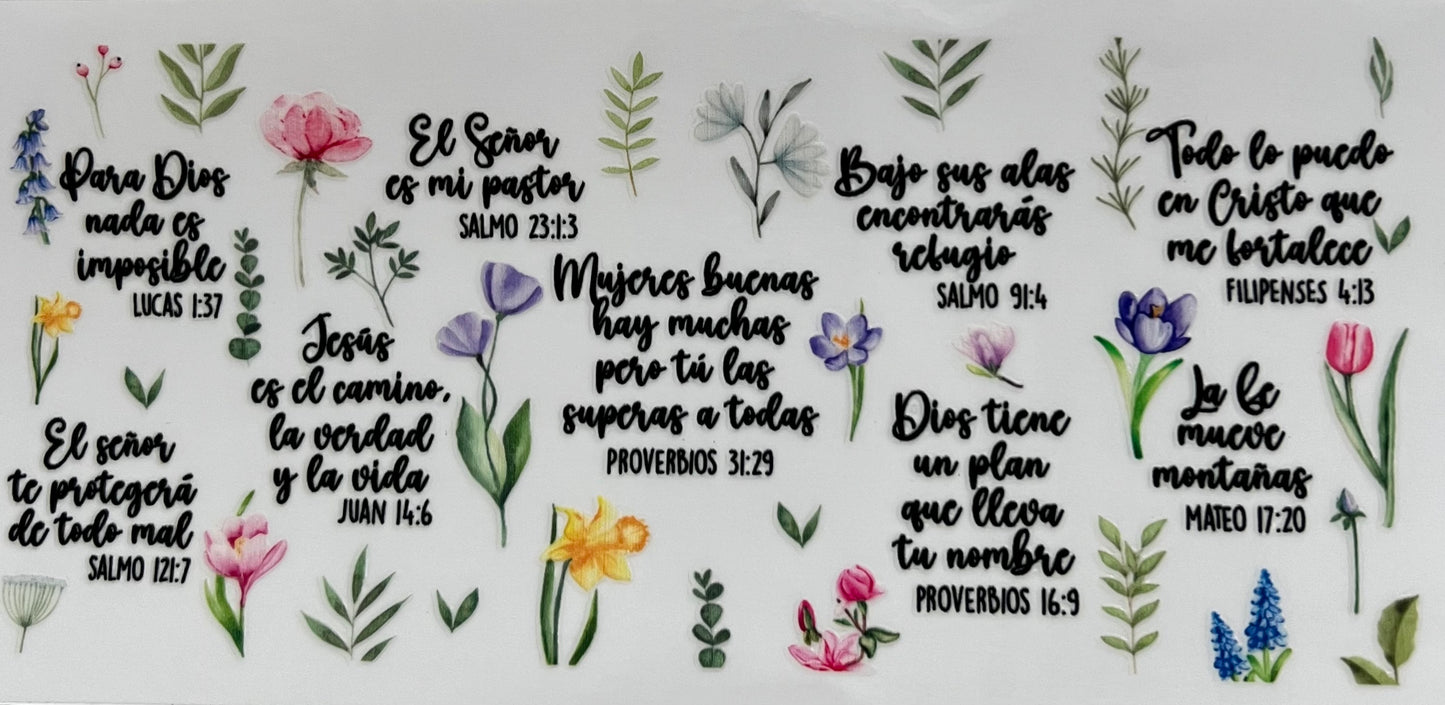 Para Dios
nada es
imposible
LUCAS 1:37
El Señor
es mi pastor
SALMO 23:1:3
Bajo sus alas
encontrarás
refugio
SALMO 91:4
Todo lo puedo
en Cristo que
me fortalece
FILIPENSES 4:13
El señor
te protegerá
de todo mal
SALMO 121:7
Jesús
es el camino,
la verdad
y la vida
JUAN 14:6
Mujeres buenas
hay muchas
pero tú las
superas a todas
PROVERBIOS 31:29
Dios tiene
un plan
que lleva
tu nombre
PROVERBIOS 16:9
La fe
mueve
montañas
MATEO 17:20